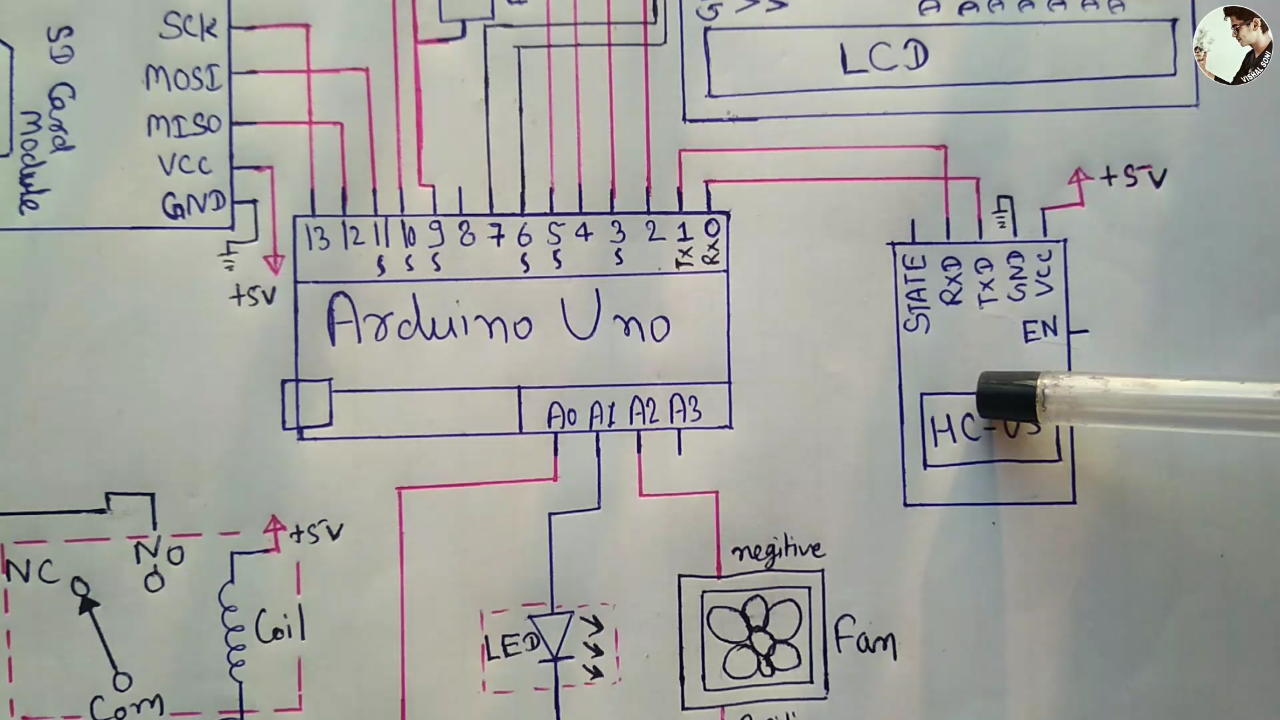 SCK
MOSI
MISO
VCC
GND
SD Card
Module
+5V
LCD
VISHAL SONI
+5V
13 12 11 10 9 8 7 6 5 4 3 2 1 0
S S S S S S TX RX
Arduino Uno
A0 A1 A2 A3
STATE
RXD
TXD
GND
VCC
EN
HC-05
NC
NO
+5V
Coil
Com
LED
negitive
Fan